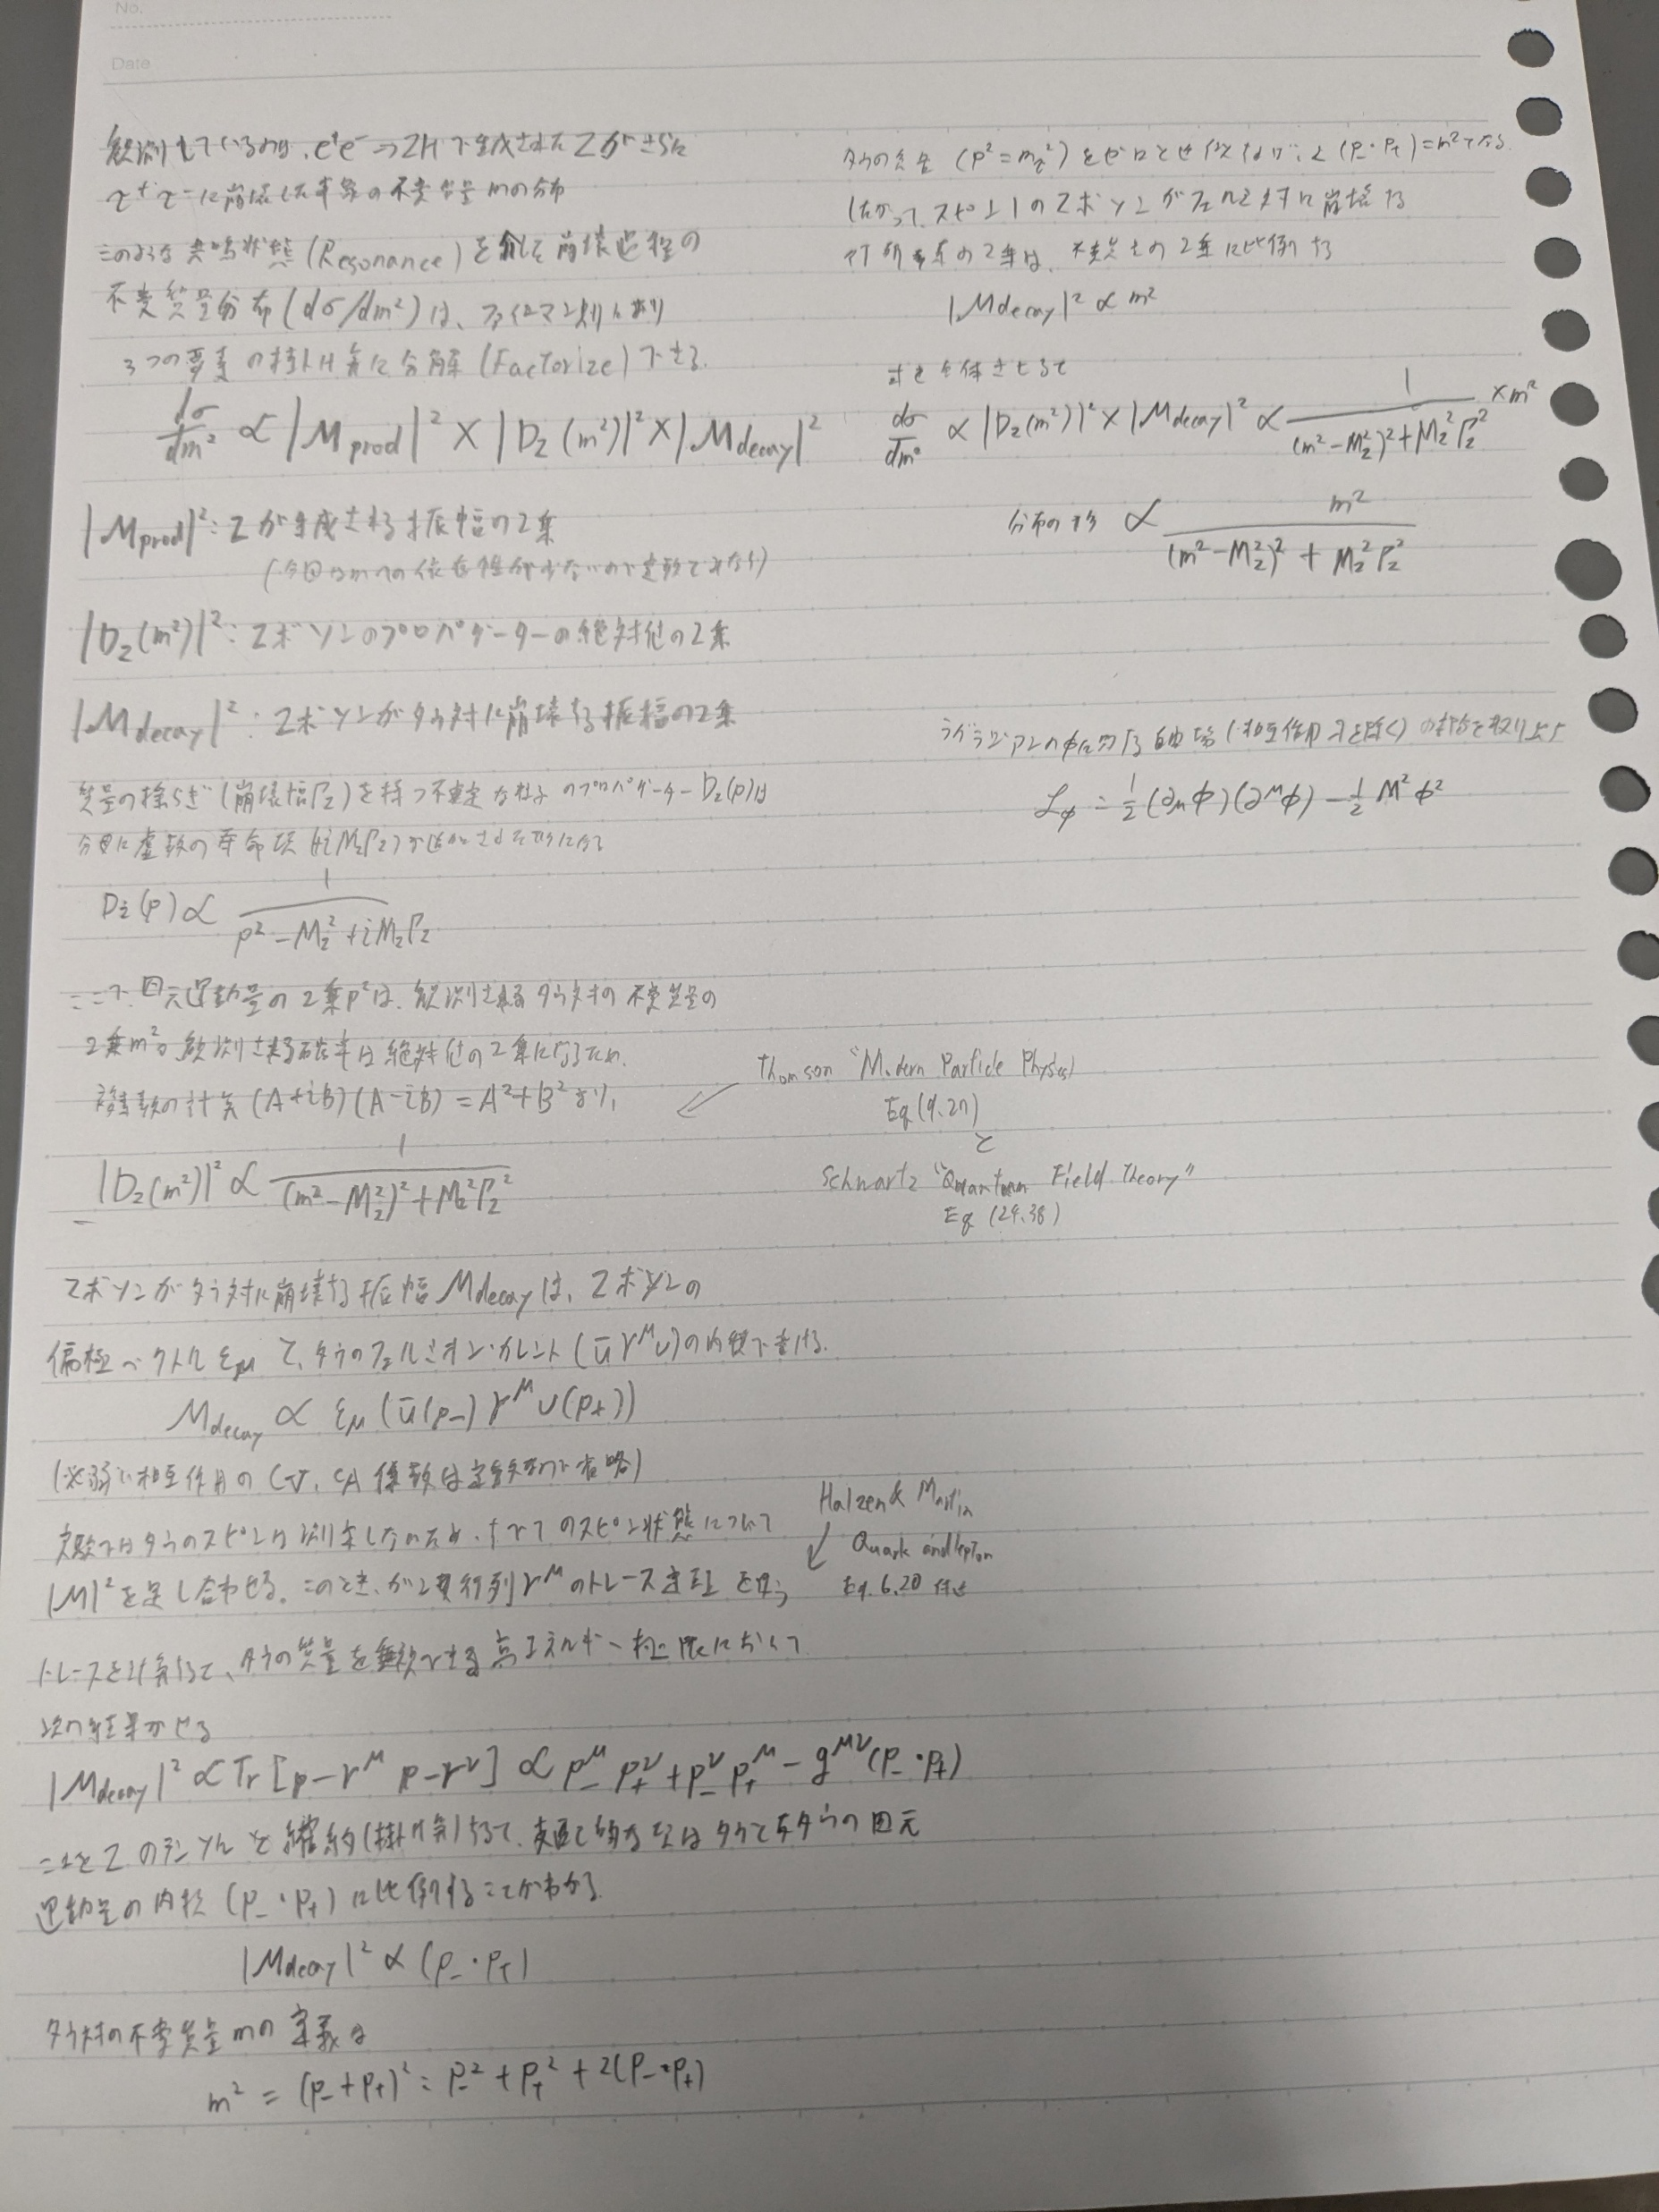 No.
Date
観測しているのは、e⁺e⁻→ZHで生成されたZがさらに
τ⁺τ⁻に崩壊した事象の不変質量mの分布
このような共鳴状態(Resonance)を介した崩壊過程の
不変質量分布(dσ/dm²)は、ファインマン則により
3つの要素の掛け算に分解(Factorize)できる.
dσ/dm² ∝ |Mprod|² × |D_Z(m²)|² × |Mdecay|²
|Mprod|²: Zが生成される振幅の2乗
(今回はmへの依存性が少ないので定数とみなす)
|D_Z(m²)|²: Zボソンのプロパゲーターの絶対値の2乗
|Mdecay|²: Zボソンがタウ対に崩壊する振幅の2乗
質量の揺らぎ(崩壊幅Γ_Z)を持つ不安定な粒子のプロパゲーターD_Z(p)は
分母に虚数の寿命項(iM_ZΓ_Z)が追加された形になる
D_Z(p) ∝ 1/(p²-M_Z²+iM_ZΓ_Z)
ここで、四元運動量の2乗p²は、観測されるタウ対の不変質量の
2乗m²。観測される確率は絶対値の2乗になるため、
複素数の計算 (A+iB)(A-iB)=A²+B² より、
|D_Z(m²)|² ∝ 1/((m²-M_Z²)²+M_Z²Γ_Z²)
Thomson "Modern Particle Physics"
Eq (9.27)
と
Schwartz "Quantum Field Theory"
Eq (24.38)
Zボソンがタウ対に崩壊する振幅Mdecayは、Zボソンの
偏極ベクトルεμと、タウのフェルミオン・カレント(ūγ^μv)の内積で書ける.
Mdecay ∝ εμ(ū(p₋)γ^μ v(p₊))
(※弱い相互作用のCV, CA係数は定数なので省略)
実験ではタウのスピンは測定しないため、すべてのスピン状態について
|M|²を足し合わせる。このとき、ガンマ行列γ^μのトレース定理を用い
Halzen & Martin
Quark and lepton
Eq. 6.20
トレースを計算すると、タウの質量を無視できる高エネルギー極限において
次の結果がでる
|Mdecay|² ∝ Tr[p-γ^μ p-γ^ν] ∝ p₋^μ p₊^ν+p₋^ν p₊^μ-g^μν(p₋·p₊)
これをZのテンソルと縮約(掛け算)すると、支配的な項はタウと反タウの四元
運動量の内積 (p₋·p₊) に比例することがわかる.
|Mdecay|² ∝ (p₋·p₊)
タウ対の不変質量mの定義は
m² = (p₋+p₊)² = p₋²+p₊²+2(p₋·p₊)
タウの質量 (p²=mτ²) をゼロとせ 2(p₋·p₊)=m²となる.
したがって、スピン1のZボソンがフェルミオン対に崩壊する
行列要素の2乗は、不変質量の2乗に比例する
|Mdecay|² ∝ m²
式を合体させると
dσ/dm² ∝ |D_Z(m²)|² × |Mdecay|² ∝ 1/((m²-M_Z²)²+M_Z²Γ_Z²) × m²
分布の形 ∝ m²/((m²-M_Z²)²+M_Z²Γ_Z²)
ラグランジアンのφに関する自由場(相互作用λを除く)の部分を取り出す
Lφ = 1/2(∂μφ)(∂^μφ) - 1/2 M²φ²